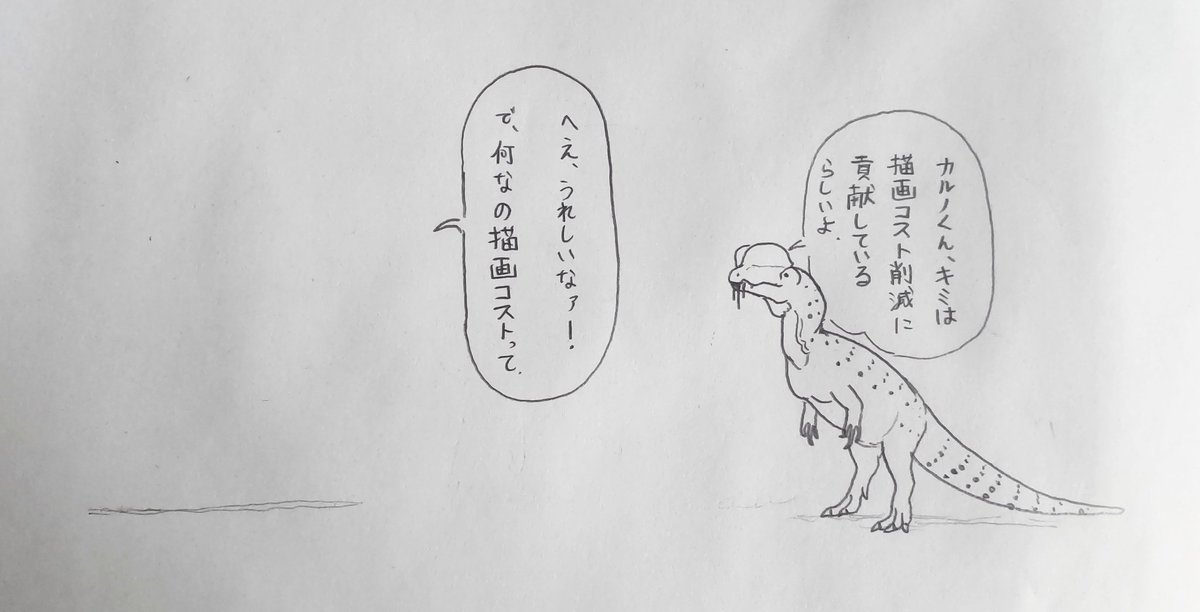 カルノくん、キミは
描画コスト削減に
貢献している
らしいよ.
へえ、うれしいなァー.
で、何なの描画コストって.